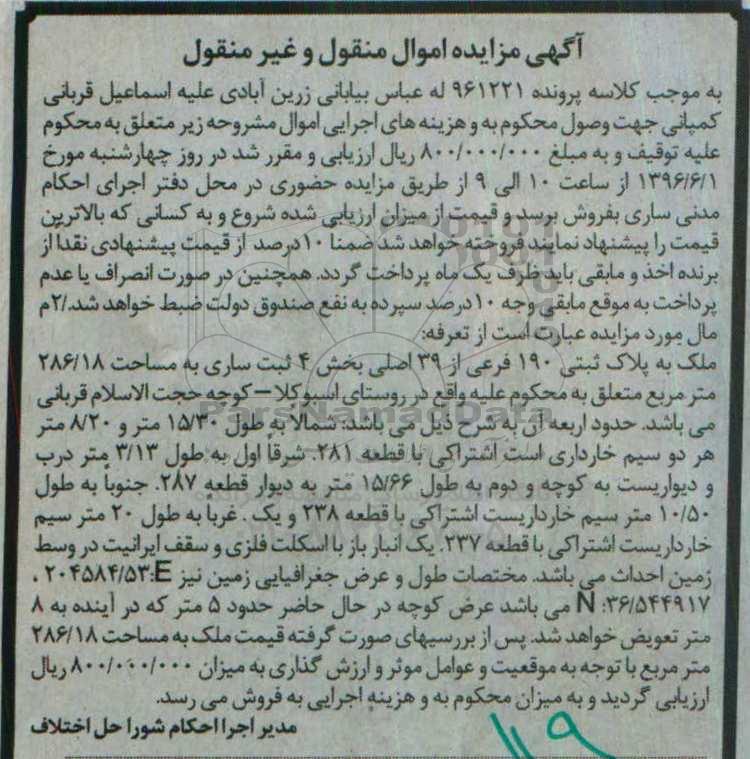 آگهی مزایده اموال منقول و غیر منقول
به موجب کلاسه پرونده ۹۶۱۲۲۱ له عباس بیابانی زرین آبادی علیه اسماعیل قربانی
کمپانی جهت وصول محکوم به و هزینه های اجرایی اموال مشروحه زیر متعلق به محکوم
علیه توقیف و به مبلغ ۸۰۰/۰۰۰/۰۰۰ ریال ارزیابی و مقرر شد در روز چهارشنبه مورخ
۱۳۹۶/۶/۱ از ساعت ۱۰ الی ۹ از طریق مزایده حضوری در محل دفتر اجرای احکام
مدنی ساری بفروش برسد و قیمت از میزان ارزیابی شده شروع و به کسانی که بالاترین
قیمت را پیشنهاد نمایند فروخته خواهد شد ضمنا ۱۰درصد از قیمت پیشنهادی نقدا از
برنده اخذ و مابقی باید ظرف یک ماه پرداخت گردد. همچنین در صورت انصراف یا عدم
پرداخت به موقع مابقی وجه ۱۰درصد سپرده به نفع صندوق دولت ضبط خواهد شد./۲م
مال مورد مزایده عبارت است از تعرفه:
ملک به پلاک ثبتی ۱۹۰ فرعی از ۳۹ اصلی بخش ۴ ثبت ساری به مساحت ۲۸۶/۱۸
متر مربع متعلق به محکوم علیه واقع در روستای اسبوکلا – کوچه حجت الاسلام قربانی
ParsNamadData
می باشد. حدود اربعه آن به شرح ذیل می باشد: شمالا به طول ۱۵/۳۰ متر و ۸/۲۰ متر
هر دو سیم خارداری است اشتراکی با قطعه ۲۸۱. شرقاً اول به طول ۳/۱۳ متر درب
و دیواریست به کوچه و دوم به طول ۱۵/۶۶ متر به دیوار قطعه ۲۸۷. جنوباً به طول
۱۰/۵۰ متر سیم خارداریست اشتراکی با قطعه ۲۳۸ و یک . غربا به طول ۲۰ متر سیم
خارداریست اشتراکی با قطعه ۲۳۷. یک انبار باز با اسکلت فلزی و سقف ایرانیت در وسط
زمین احداث می باشد. مختصات طول و عرض جغرافیایی زمین نیز E:۲۰۴۵۸۴/۵۳ ،
N :۳۶/۵۴۴۹۱۷ می باشد عرض کوچه در حال حاضر حدود ۵ متر که در آینده به ۸
متر تعویض خواهد شد. پس از بررسیهای صورت گرفته قیمت ملک به مساحت ۲۸۶/۱۸
متر مربع با توجه به موقعیت و عوامل موثر و ارزش گذاری به میزان ۸۰۰/۰۰۰/۰۰۰ ریال
ارزیابی گردید و به میزان محکوم به و هزینه اجرایی به فروش می رسد.
مدیر اجرا احکام شورا حل اختلاف
۱۱۹